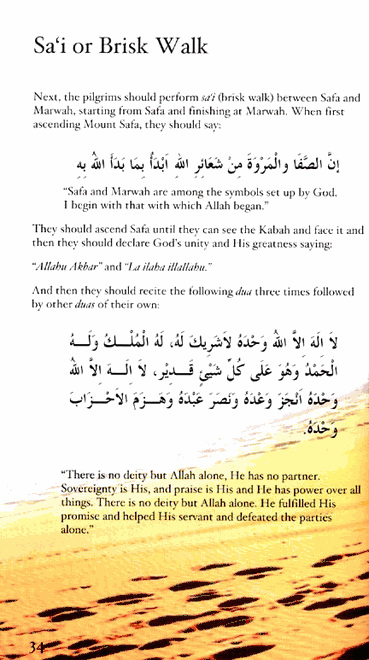 Sa‘i or Brisk Walk
Next, the pilgrims should perform sa‘i (brisk walk) between Safa and
Marwah, starting from Safa and finishing at Marwah. When first
ascending Mount Safa, they should say:
إِنَّ الصَّفَا والْمَرْوَةَ مِنْ شَعَائِرِ اللهِ اَبْدَأُ بِمَا بَدَأَ اللهُ بِهِ
“Safa and Marwah are among the symbols set up by God.
I begin with that with which Allah began.”
They should ascend Safa until they can see the Kabah and face it and
then they should declare God’s unity and His greatness saying:
“Allahu Akbar” and “La ilaha illallahu.”
And then they should recite the following dua three times followed
by other duas of their own:
لاَ اِلَهَ اِلاَّ اللهُ وَحْدَهُ لاَشَرِيكَ لَهُ، لَهُ الْمُلْـــكُ وَلَـــهُ
الْحَمْدُ وَهُوَ عَلَى كُلِّ شَيْئٍ قَـــدِيْرٍ، لاَ اِلَـــهَ اِلاَّ اللهُ
وَحْدَهُ اَنْجَزَ وَعْدَهُ وَنَصَرَ عَبْدَهُ وَهَـــزَمَ الاَحْـــزَابَ
وَحْدَهُ.
“There is no deity but Allah alone, He has no partner.
Sovereignty is His, and praise is His and He has power over all
things. There is no deity but Allah alone. He fulfilled His
promise and helped His servant and defeated the parties
alone.”
34